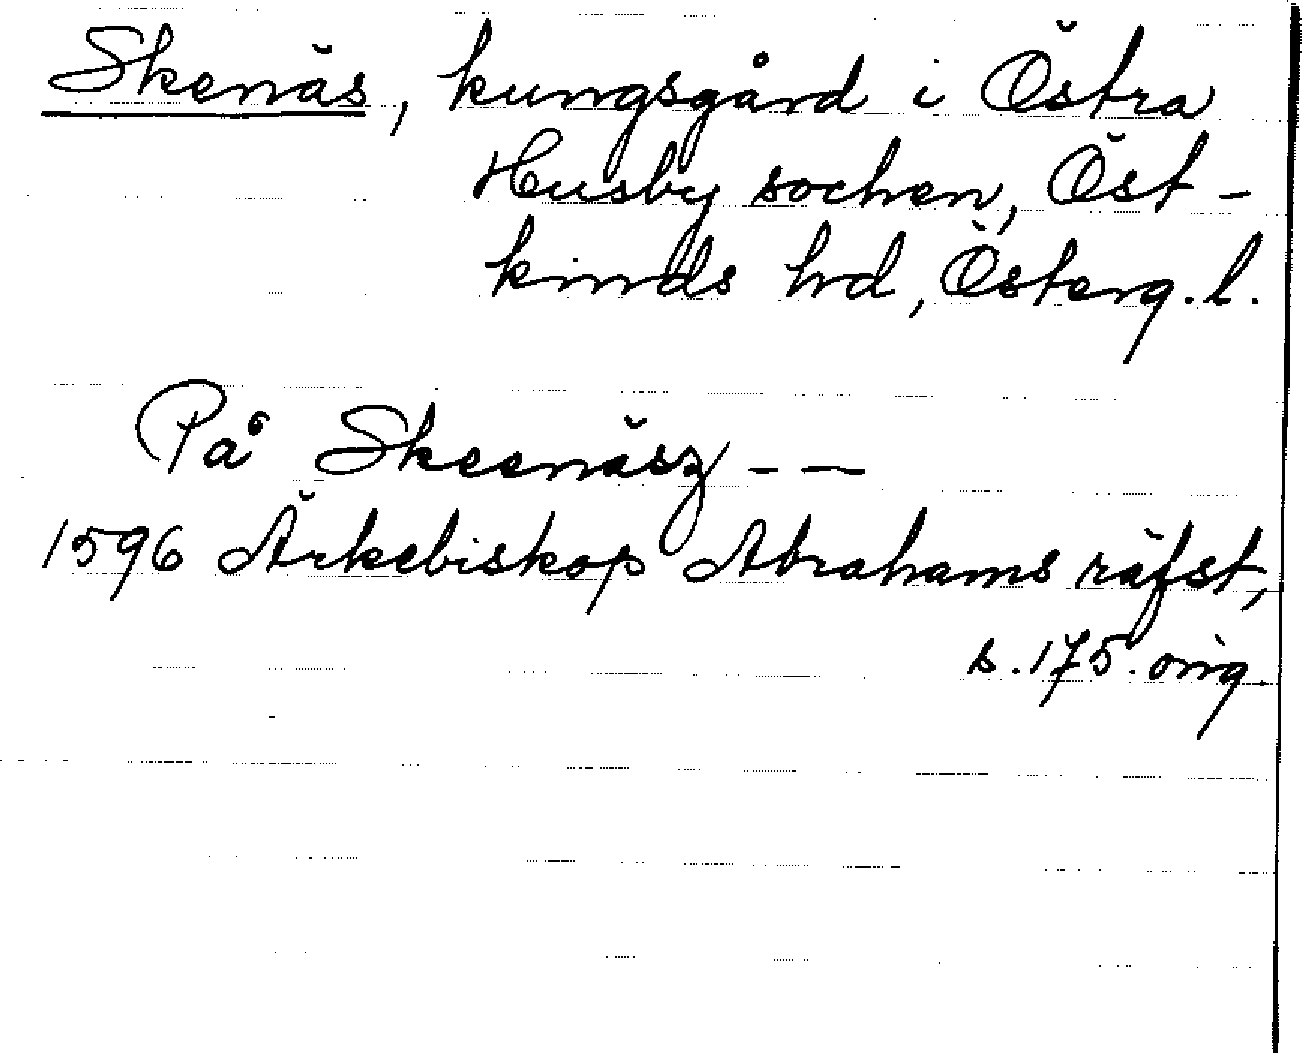 Skenäs, kungsgård i Östra
Husby socken, Öst-
kinds hd, Österg. l.
På Skeenäsz - —
1596 Ärkebiskop Abrahams räfst,
s. 175. orig.